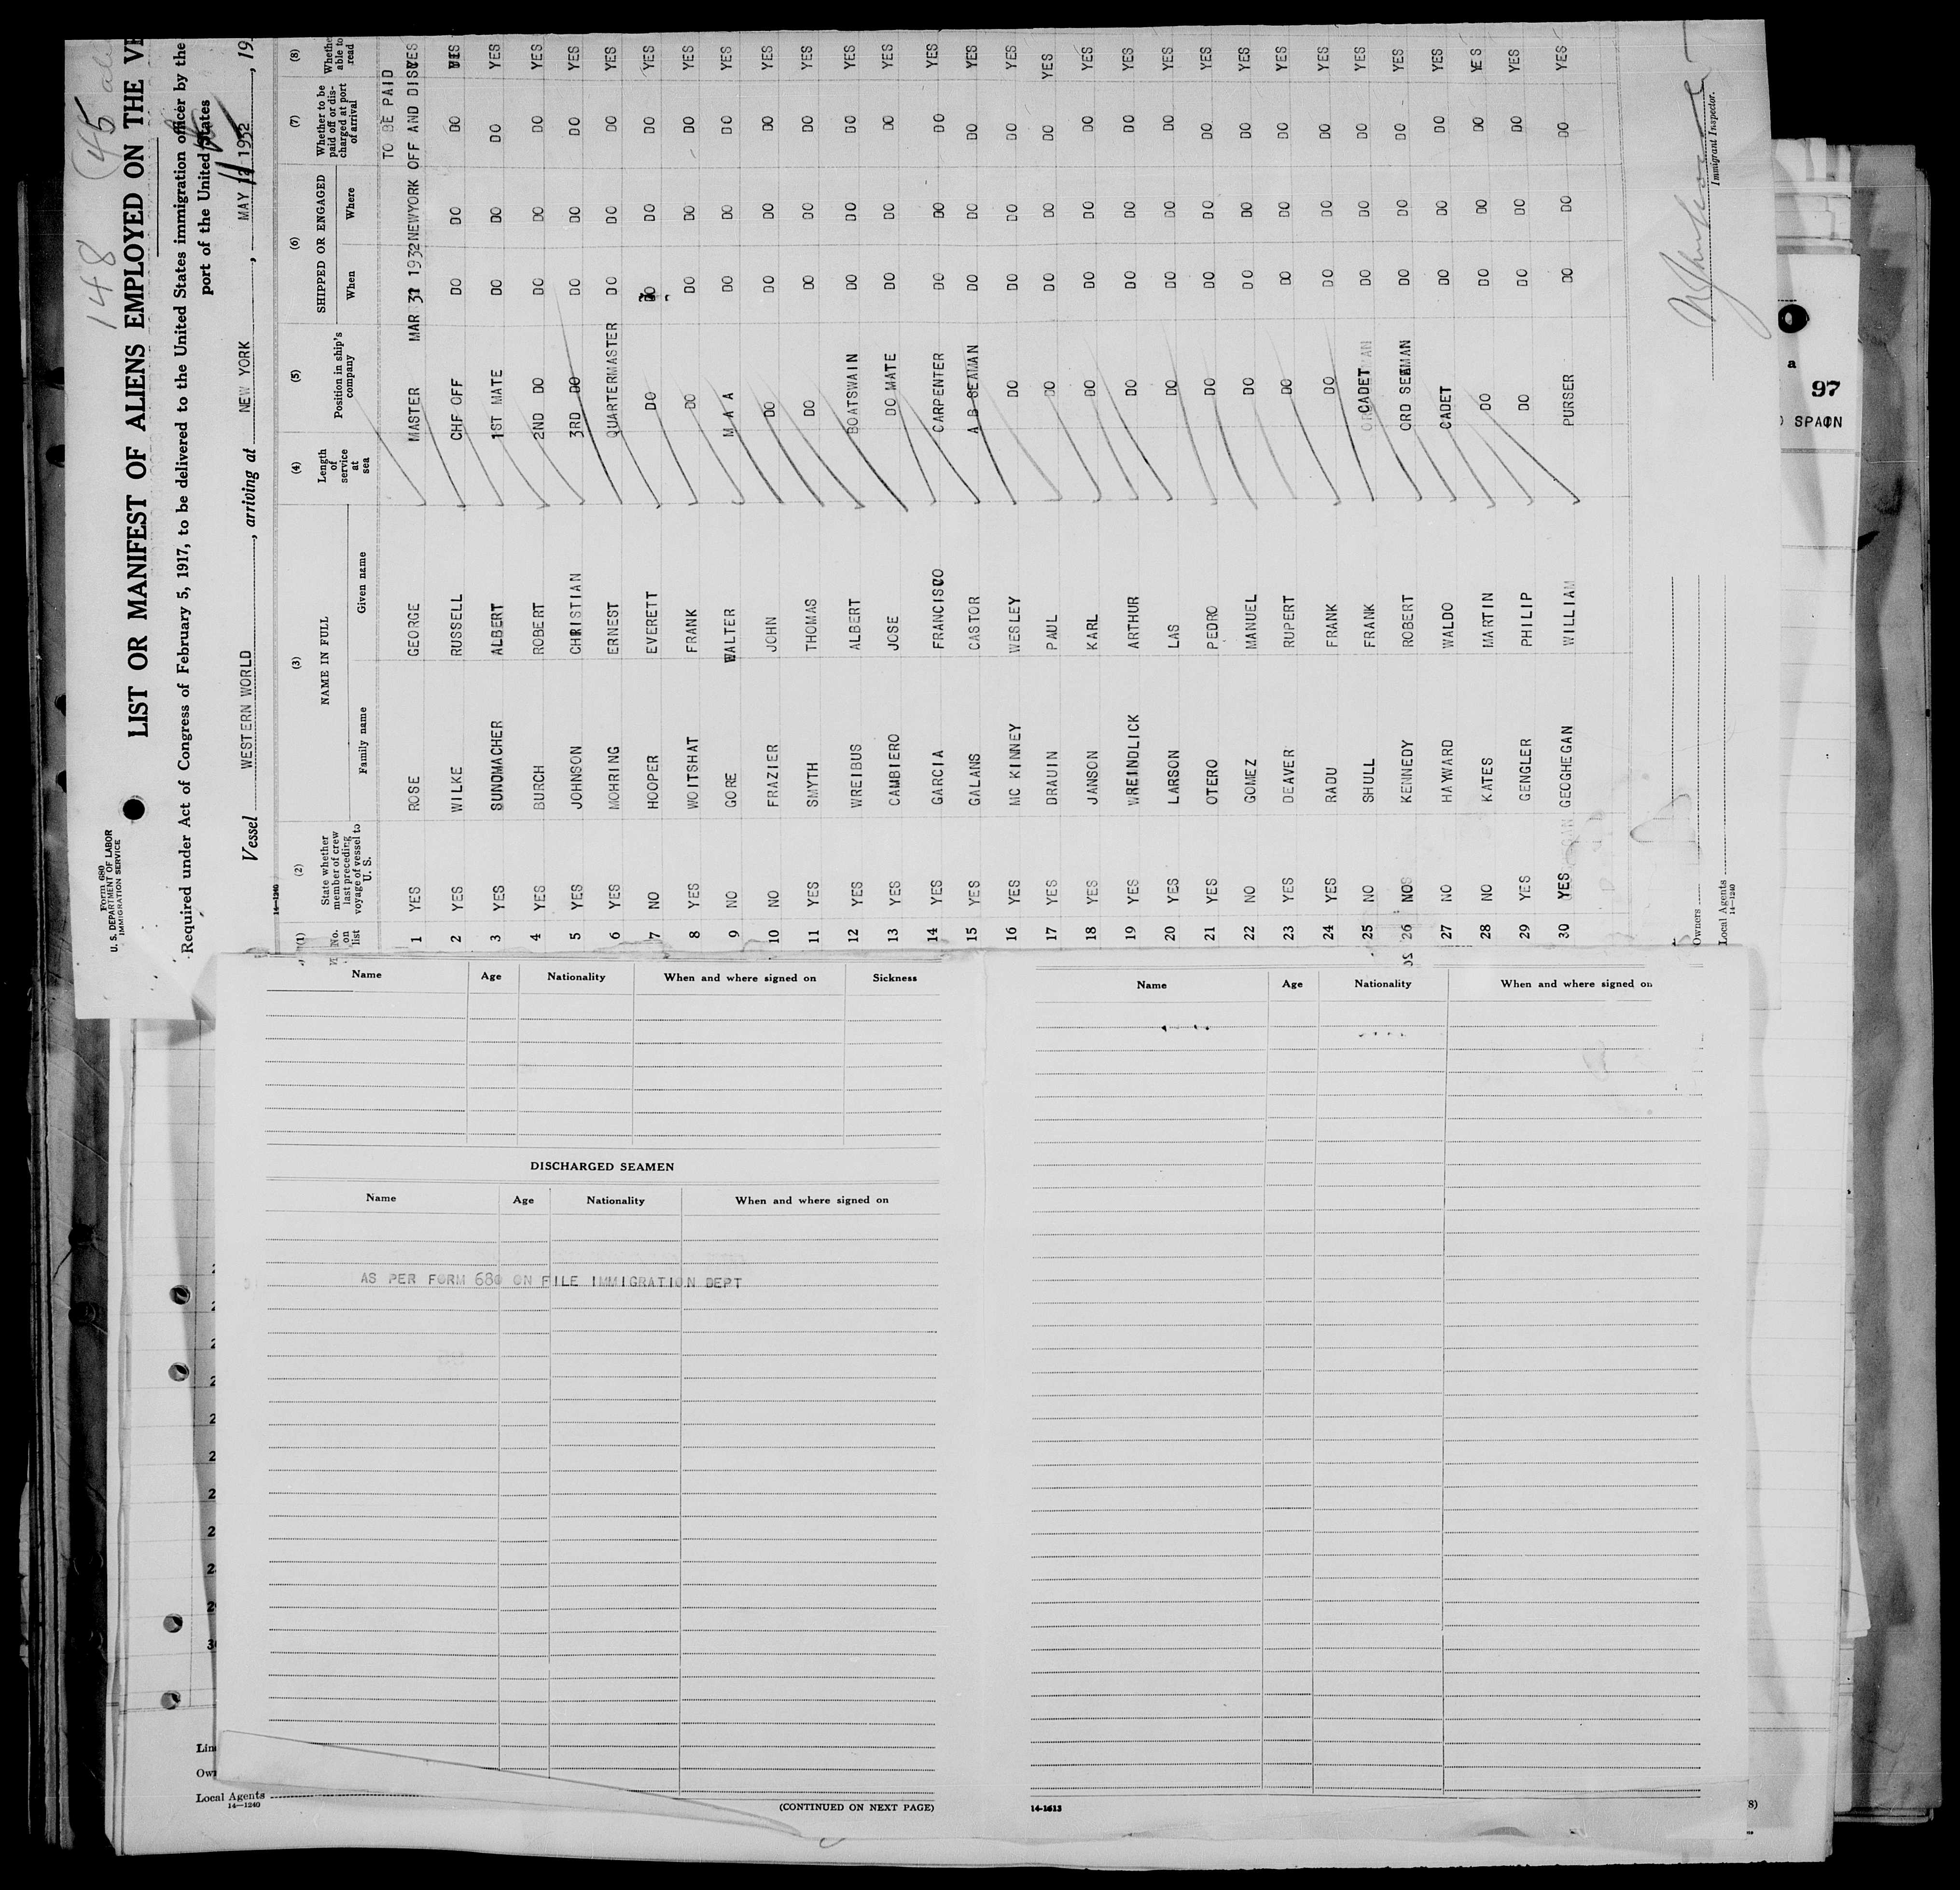 148 (45
Form 680
U. S. DEPARTMENT OF LABOR
IMMIGRATION SERVICE
LIST OR MANIFEST OF ALIENS EMPLOYED ON THE
Required under Act of Congress of February 5, 1917, to be delivered to the United States immigration officer by the
port of the United States
Vessel WESTERN WORLD, arriving at NEW YORK, MAY 11 1932, 19
14-1240
(1) (2) (3) (4) (5) (6) (7) (8)
No. on list State whether member of crew last preceding voyage of vessel to U. S. NAME IN FULL Length of service at sea Position in ship's company SHIPPED OR ENGAGED Whether to be paid off or discharged at port of arrival Whether able to read
Family name Given name When Where
TO BE PAID
1 YES ROSE GEORGE MASTER MAR 31 1932 NEWYORK OFF AND DISC YES
2 YES WILKE RUSSELL CHF OFF DO DO DO YES
3 YES SUNDMACHER ALBERT 1ST MATE DO DO DO YES
4 YES BURCH ROBERT 2ND DO DO DO DO YES
5 YES JOHNSON CHRISTIAN 3RD DO DO DO DO YES
6 YES MOHRING ERNEST QUARTERMASTER DO DO DO YES
7 NO HOOPER EVERETT DO DO DO DO YES
8 YES WOITSHAT FRANK DO DO DO DO YES
9 NO GORE WALTER M A A DO DO DO YES
10 NO FRAZIER JOHN DO DO DO DO YES
11 YES SMYTH THOMAS DO DO DO DO YES
12 YES WREIBUS ALBERT BOATSWAIN DO DO DO YES
13 YES CAMBIERO JOSE DO MATE DO DO DO YES
14 YES GARCIA FRANCISCO CARPENTER DO DO DO YES
15 YES GALANS CASTOR A B SEAMAN DO DO DO YES
16 YES MC KINNEY WESLEY DO DO DO DO YES
17 YES DRAUIN PAUL DO DO DO DO YES
18 YES JANSON KARL DO DO DO DO YES
19 YES WREINDLICK ARTHUR DO DO DO DO YES
20 YES LARSON LAS DO DO DO DO YES
21 YES OTERO PEDRO DO DO DO DO YES
22 NO GOMEZ MANUEL DO DO DO DO YES
23 YES DEAVER RUPERT DO DO DO DO YES
24 YES RADU FRANK DO DO DO DO YES
25 NO SHULL FRANK CADET DO DO DO YES
26 NO KENNEDY ROBERT ORD SEAMAN DO DO DO YES
27 NO HAYWARD WALDO CADET DO DO DO YES
28 NO KATES MARTIN DO DO DO DO YES
29 YES GENGLER PHILIP DO DO DO DO YES
30 YES GEOGHEGAN WILLIAM PURSER DO DO DO YES
Owners
Local Agents
14-1240
Immigrant Inspector.
a
97
SPAIN
Name Age Nationality When and where signed on Sickness
DISCHARGED SEAMEN
Name Age Nationality When and where signed on
AS PER FORM 680 ON FILE IMMIGRATION DEPT
(CONTINUED ON NEXT PAGE)
Name Age Nationality When and where signed on
14-1613
Local Agents
14-1240